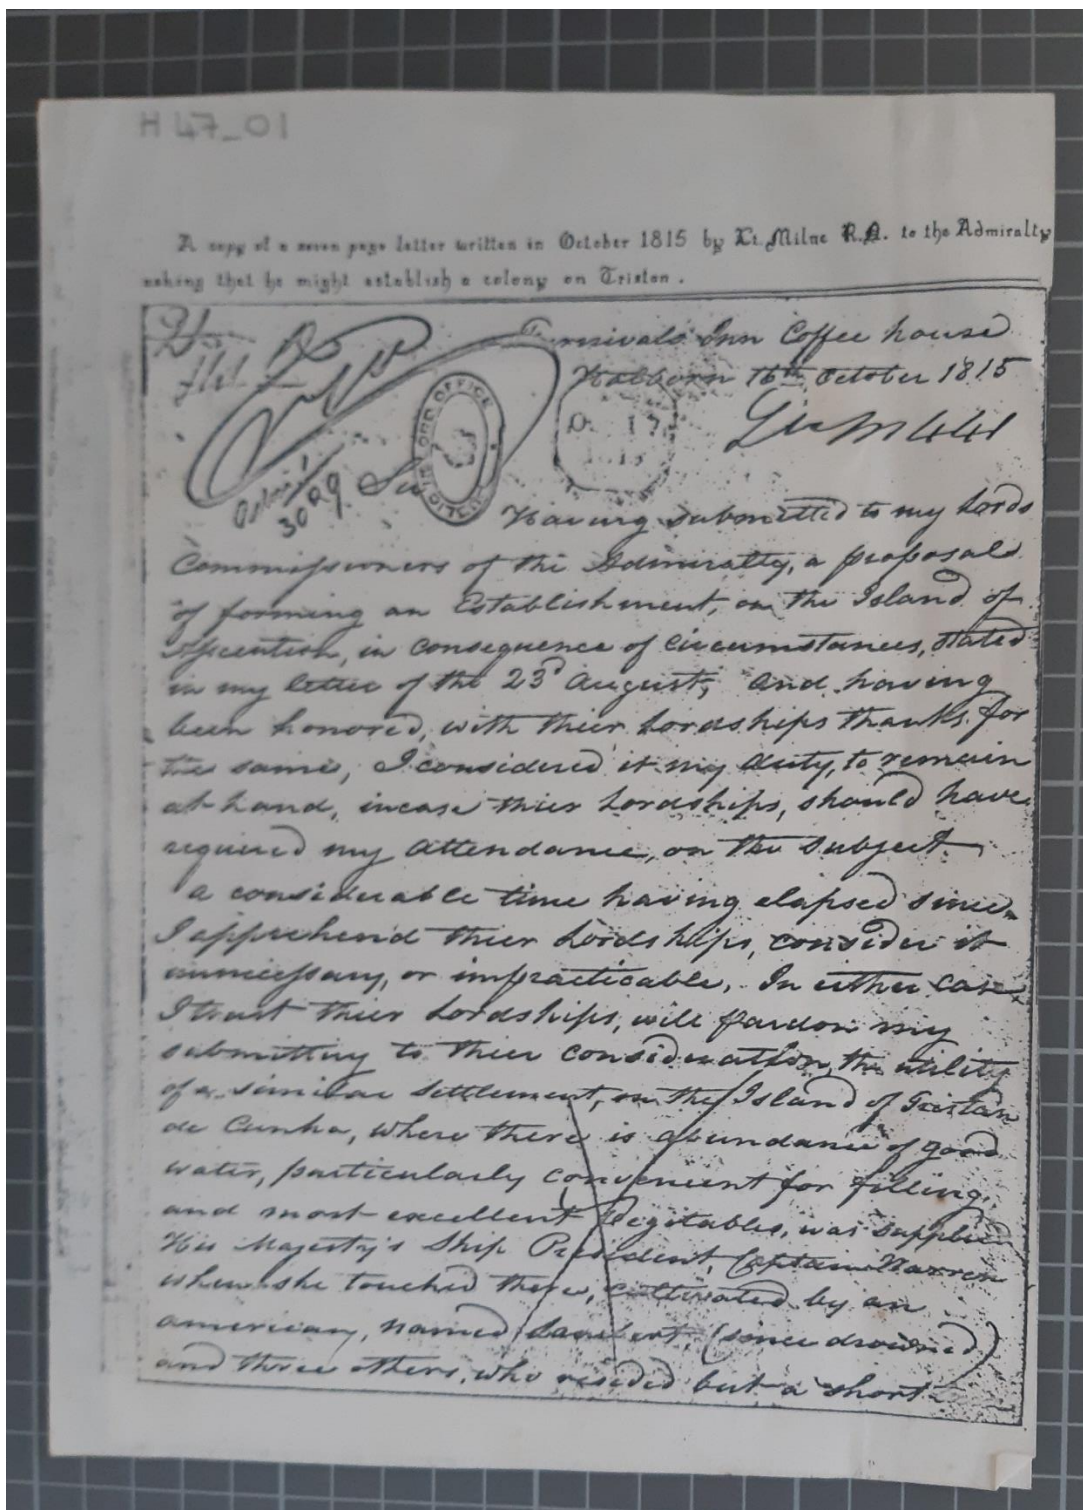 H 47_01
A copy of a seven page letter written in October 1815 by Lt. Milne R.N. to the Admiralty
asking that he might establish a colony on Tristan.
Furnivals Inn Coffee house
Holborn 16th October 1815
PUBLIC RECORD OFFICE
17
1815
3099 Sir
Having submitted to my Lords
Commissioners of the Admiralty, a proposal
of forming an Establishment, on the Island of
Ascention, in consequence of circumstances, stated
in my letter of the 23d August, And having
been honored, with thier Lordships thanks for
the same, I considered it my duty, to remain
at hand, incase thier Lordships, should have
required my Attendance, on the subject.
a considerable time having elapsed since
I apprehend thier Lordships, consider it
unnicessary, or impracticable, In either case,
I trust thier Lordships, will pardon my
submitting to thier consideration, the utility
of a similar settlement, on the Island of Tristan
de Cunha, where there is abundance of good
water, particularly convenient for filling,
and most excellent Vegitables, was supplied
His Majesty's Ship President, Captain Warren
when she touched there, cultivated by an
american, named Lambert, (since drowned)
and three others, who resided but a short